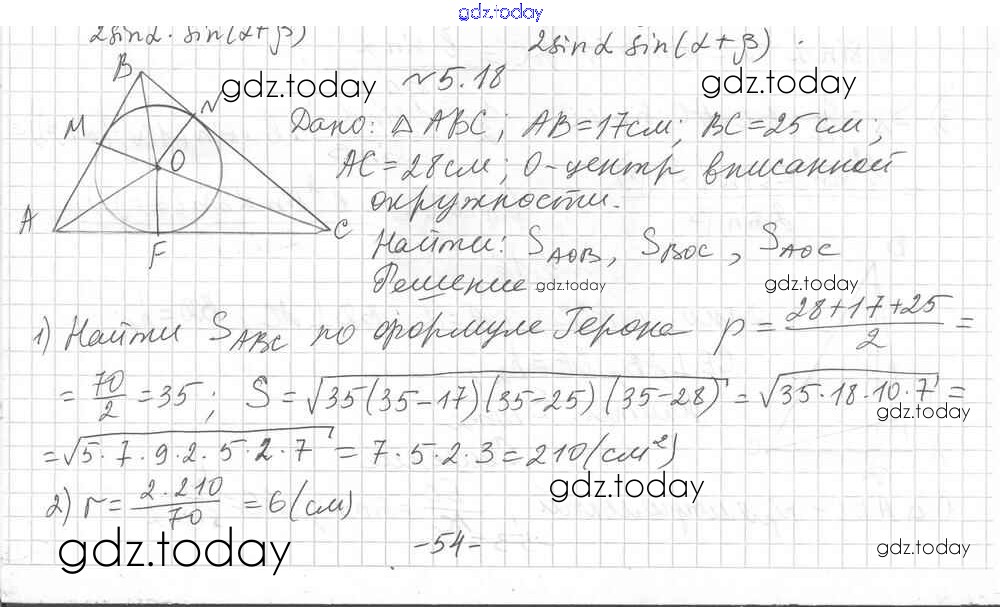 gdz.today
2sinα · sin(α+β)
2sinα sin(α+β) .
N 5.18
gdz.today
gdz.today
B
N
M
O
A
F
C
Дано: △ABC; AB=17см; BC=25см;
AC=28см; O-центр вписанной
окружности.
Найти: S_AOB, S_BOC, S_AOC
Решение
gdz.today
gdz.today
1) Найти S_ABC по формуле Герона p = (28+17+25)/2 =
= 70/2 = 35; S = √(35(35-17)(35-25)(35-28)) = √(35·18·10·7) =
gdz.today
= √(5·7·9·2·5·2·7) = 7·5·2·3 = 210 (см²)
2) r = (2·210)/70 = 6 (см)
gdz.today
-54-
gdz.today
gdz.today